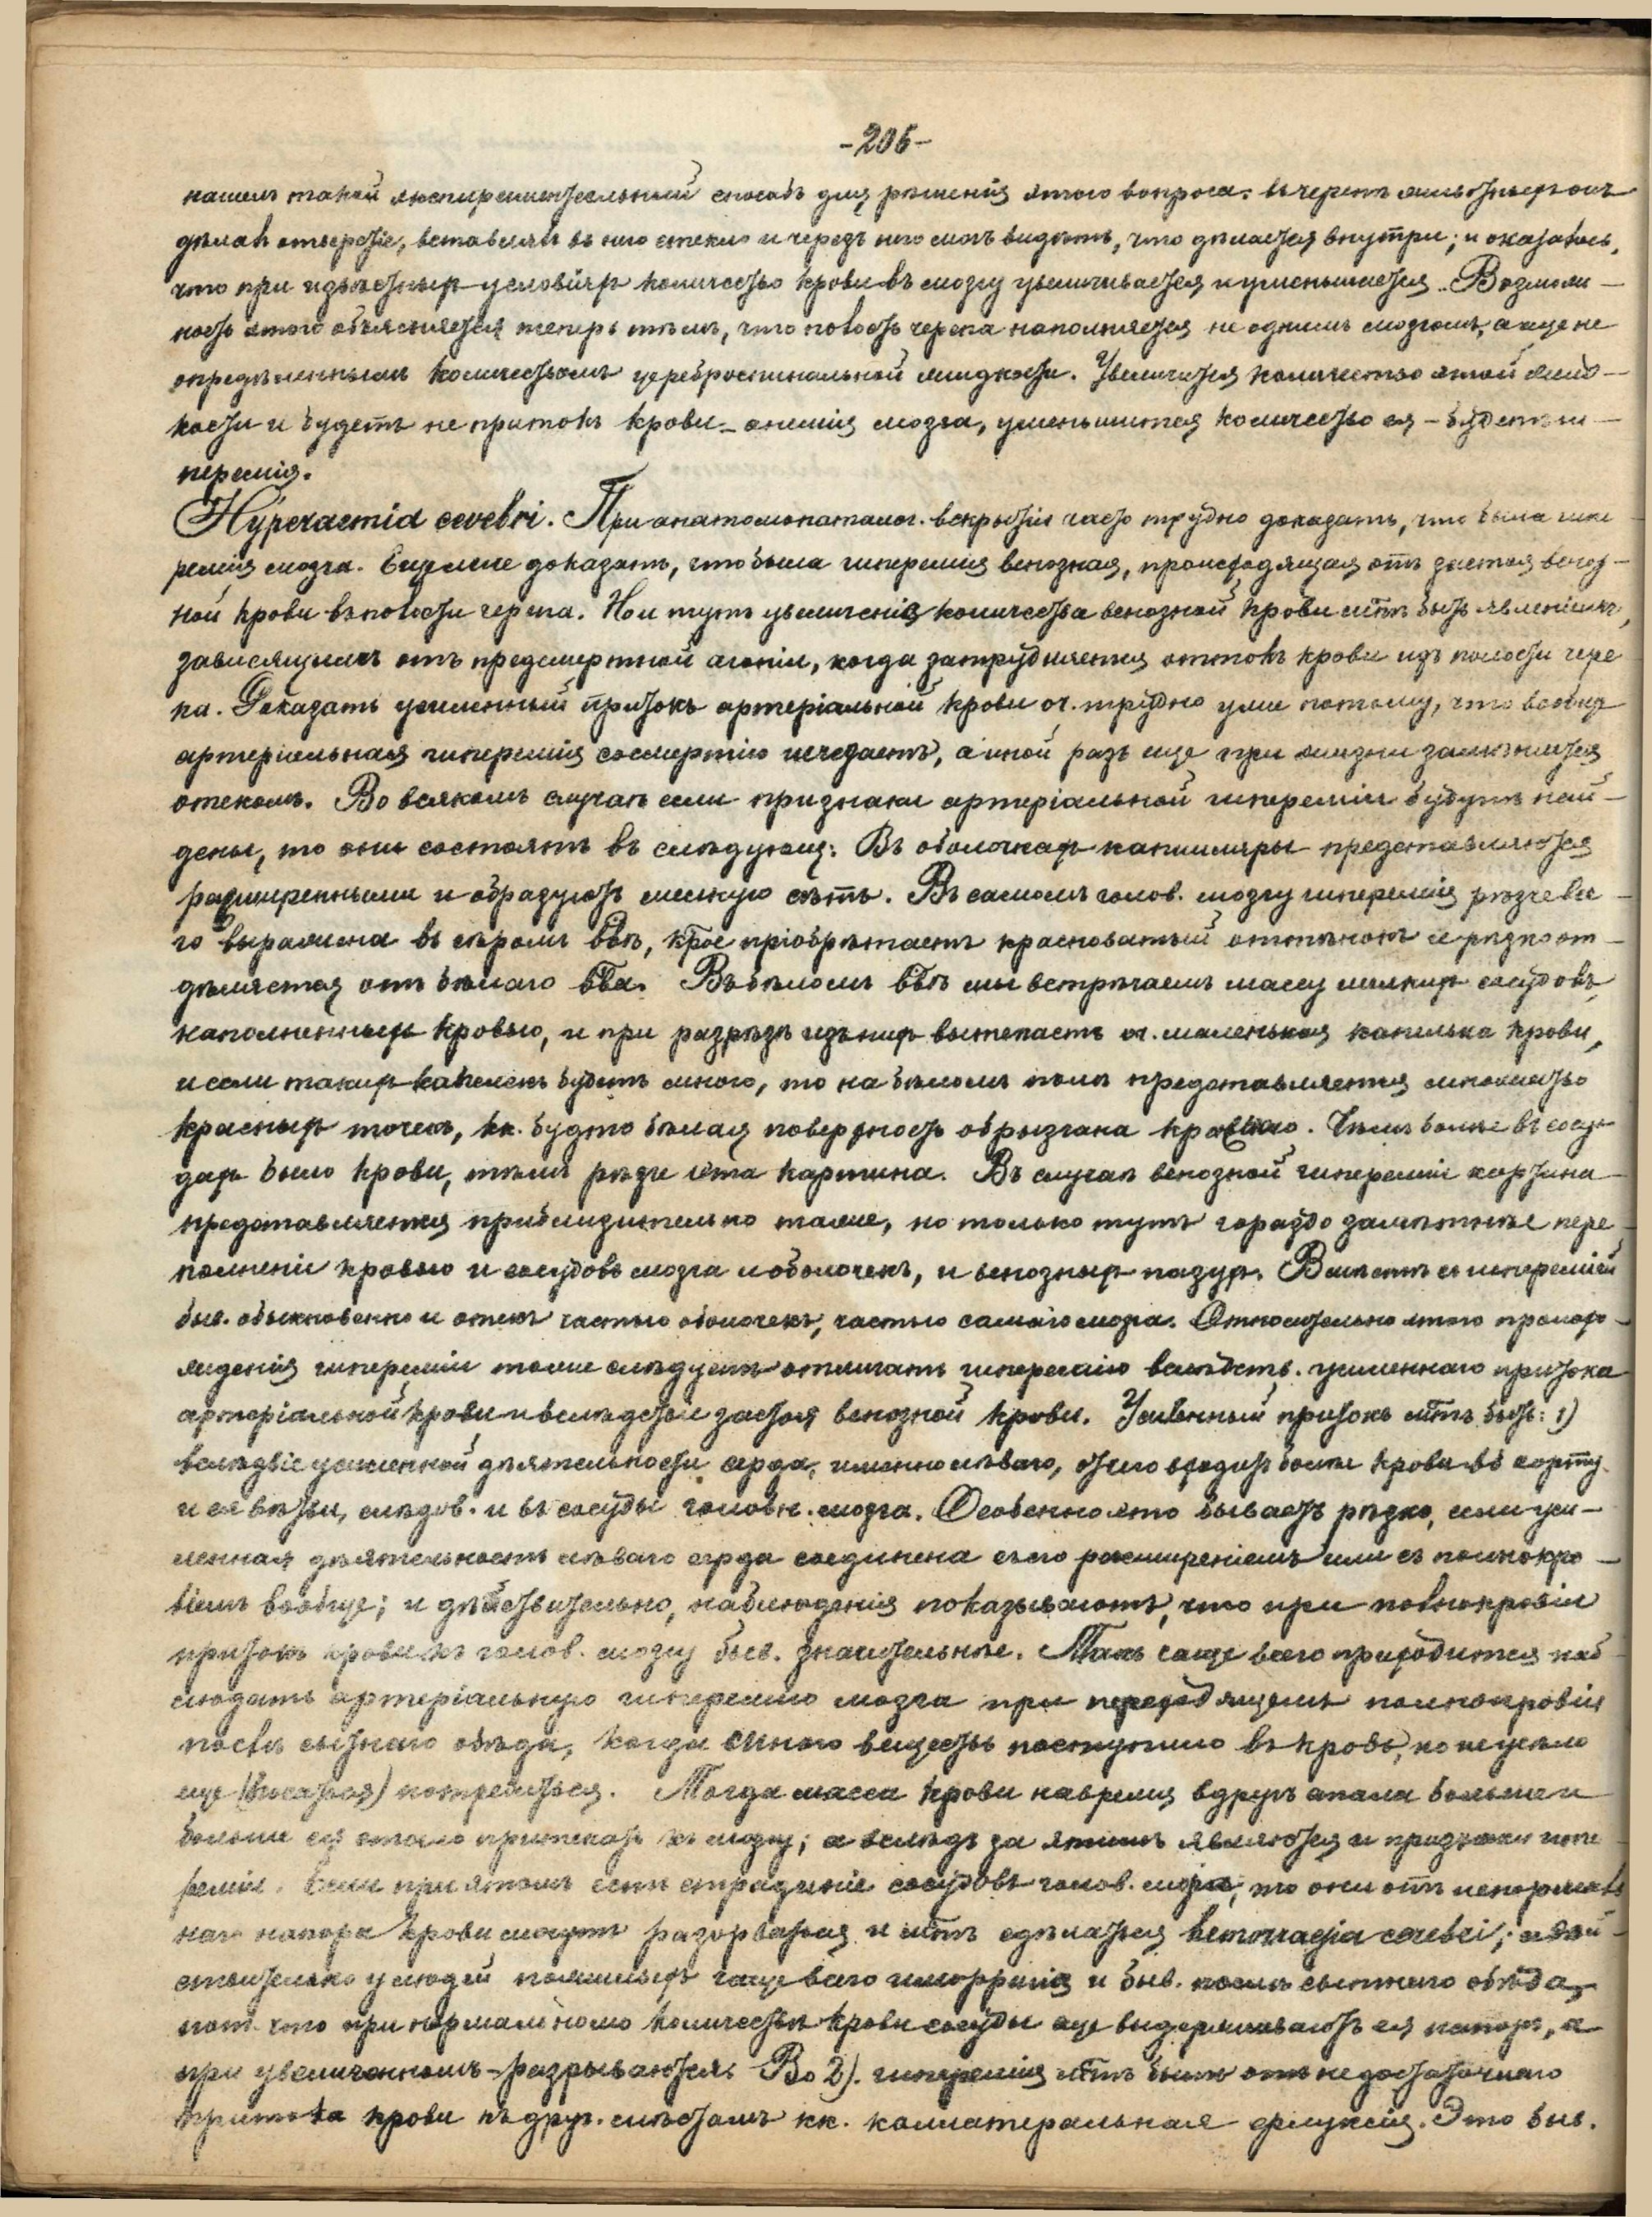 -206-
нашелъ такой экспериментальный способъ для рѣшенія этого вопроса: въ черепѣ животныхъ онъ
дѣлалъ отверстіе, вставлялъ въ него стекло и черезъ него могъ видѣть, что дѣлается внутри; и оказалось,
что при извѣстныхъ условіяхъ количество крови въ мозгу увеличивается и уменьшается. Возмож-
ность этого объясняется теперь тѣмъ, что полость черепа наполняется не однимъ мозгомъ, а еще не
опредѣленнымъ количествомъ цереброспинальной жидкости. Увеличится количество этой жид-
кости и будетъ не притокъ крови - анемія мозга, уменьшится количество ея - будетъ ги-
перемія.
Hyperaemia cerebri. При анатомопаталог. вскрытіи часто трудно доказать, что была гипе
ремія мозга. Еще легче доказать, что была гиперемія венозная, происходящая отъ застоя веноз-
ной крови въ полости черепа. Но и тутъ увеличеніе количества венозной крови мтъ быть явленіемъ,
зависящимъ отъ предсмертной агоніи, когда затрудняется оттокъ крови изъ полости чере
па. Доказать усиленный притокъ артеріальной крови оч. трудно уже потому, что вообще
артеріальная гиперемія со смертію исчезаетъ, а иной разъ еще при жизни замѣняется
отекомъ. Во всякомъ случаѣ если признаки артеріальной гипереміи будутъ най-
дены, то они состоятъ въ слѣдующ: Въ оболочкахъ капилляры представляются
расширенными и образуютъ мелкую сѣть. Въ самомъ голов. мозгу гиперемія рѣзче все-
го выражена въ сѣромъ ввѣ, крое пріобрѣтаетъ красноватый оттѣнокъ и рѣзко от-
дѣляется отъ бѣлаго вва. Въ бѣломъ ввѣ мы встрѣчаемъ массу мелкихъ сосудовъ,
наполненныхъ кровью, и при разрѣзѣ изъ нихъ вытекаетъ оч. маленькая капелька крови,
и если такихъ капелекъ будетъ много, то на бѣломъ полѣ представляется множество
красныхъ точекъ, кк. будто бѣлая поверхность обрызгана кровью. Чѣмъ больше въ сосу-
дахъ было крови, тѣмъ рѣзче эта картина. Въ случаѣ венозной гипереміи картина
представляется приблизительно такая, но только тутъ гораздо замѣтнѣе пере-
полненіе кровью и сосудовъ мозга и оболочекъ, и венозныхъ пазухъ. Вмѣстѣ съ гипереміей
быв. обыкновенно и отекъ частью оболочекъ, частью самаго мозга. Относительно этого происхо-
жденія гипереміи тоже слѣдуетъ отличать гиперемію вслѣдств. усиленнаго притока
артеріальной крови и вслѣдствіе застоя венозной крови. Усиленный притокъ мтъ быть: 1)
вслѣдвіе усиленной дѣятельности серда, именно лѣваго, отчего входитъ больше крови въ аорту
и ея вѣтви, слѣдов. и въ сосуды головн. мозга. Особенно это бываетъ рѣзко, если уси-
ленная дѣятельность лѣваго серда соединена съ его расширеніемъ или съ полнокро-
віемъ вообще; и дѣйствительно, наблюденія показываютъ, что при полнокровіи
притокъ крови къ голов. мозгу быв. значительнѣе. Такъ чаще всего приходится наб-
людать артеріальную гиперемію мозга при переходящемъ полнокровіи
послѣ сытнаго обѣда, когда много веществъ поступило въ кровь, но не успѣло
еще (всосаться) потребиться. Тогда масса крови на время вдругъ стала больше и
больше ея стало притекать къ мозгу; а вслѣдъ за этимъ являются и признаки гипе-
реміи. Если при этомъ есть страданіе сосудовъ голов. мозга, то они отъ ненормаль
наго напора крови могутъ разорваться и мтъ сдѣлаться hemorragia cerebri; и дѣй-
ствительно у людей пожилыхъ чаще всего гиморрагія и быв. послѣ сытнаго обѣда,
пот. что при нормальномъ количествѣ крови сосуды еще выдерживаютъ ея напоръ, а
при увеличенномъ - разрываются. Во 2). гиперемія мтъ быть отъ недостаточнаго
притока крови къ друг. мѣстамъ кк. коллатеральная флуксія. Это быв.